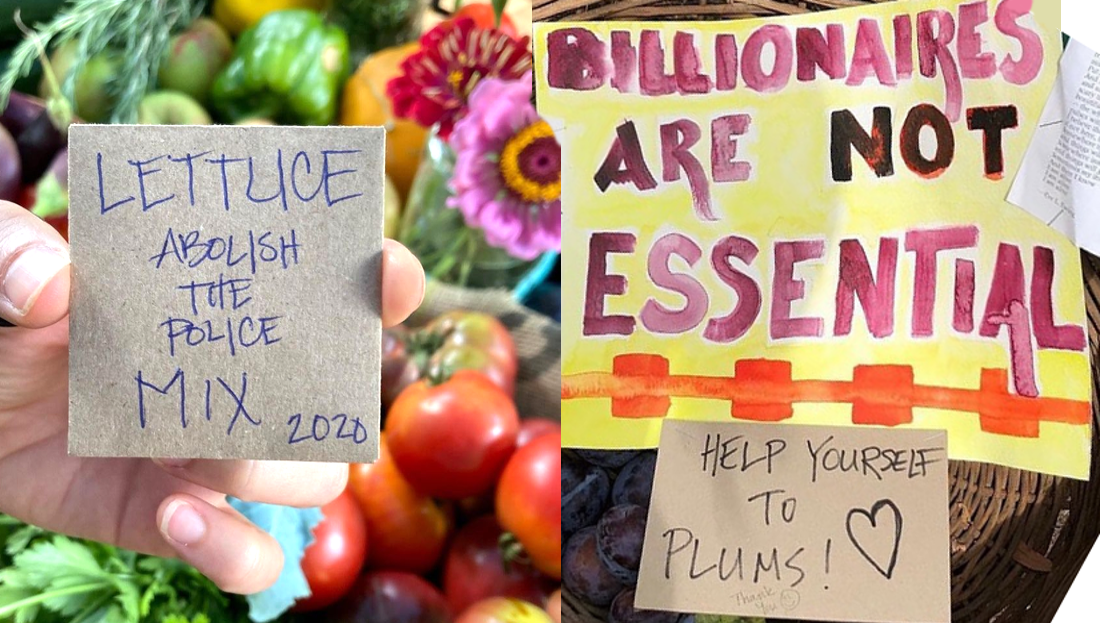 LETTUCE
ABOLISH
THE
POLICE
MIX
2020
BILLIONAIRES
ARE NOT
ESSENTIAL
HELP YOURSELF
TO
PLUMS! ♡
Thank
You ☺